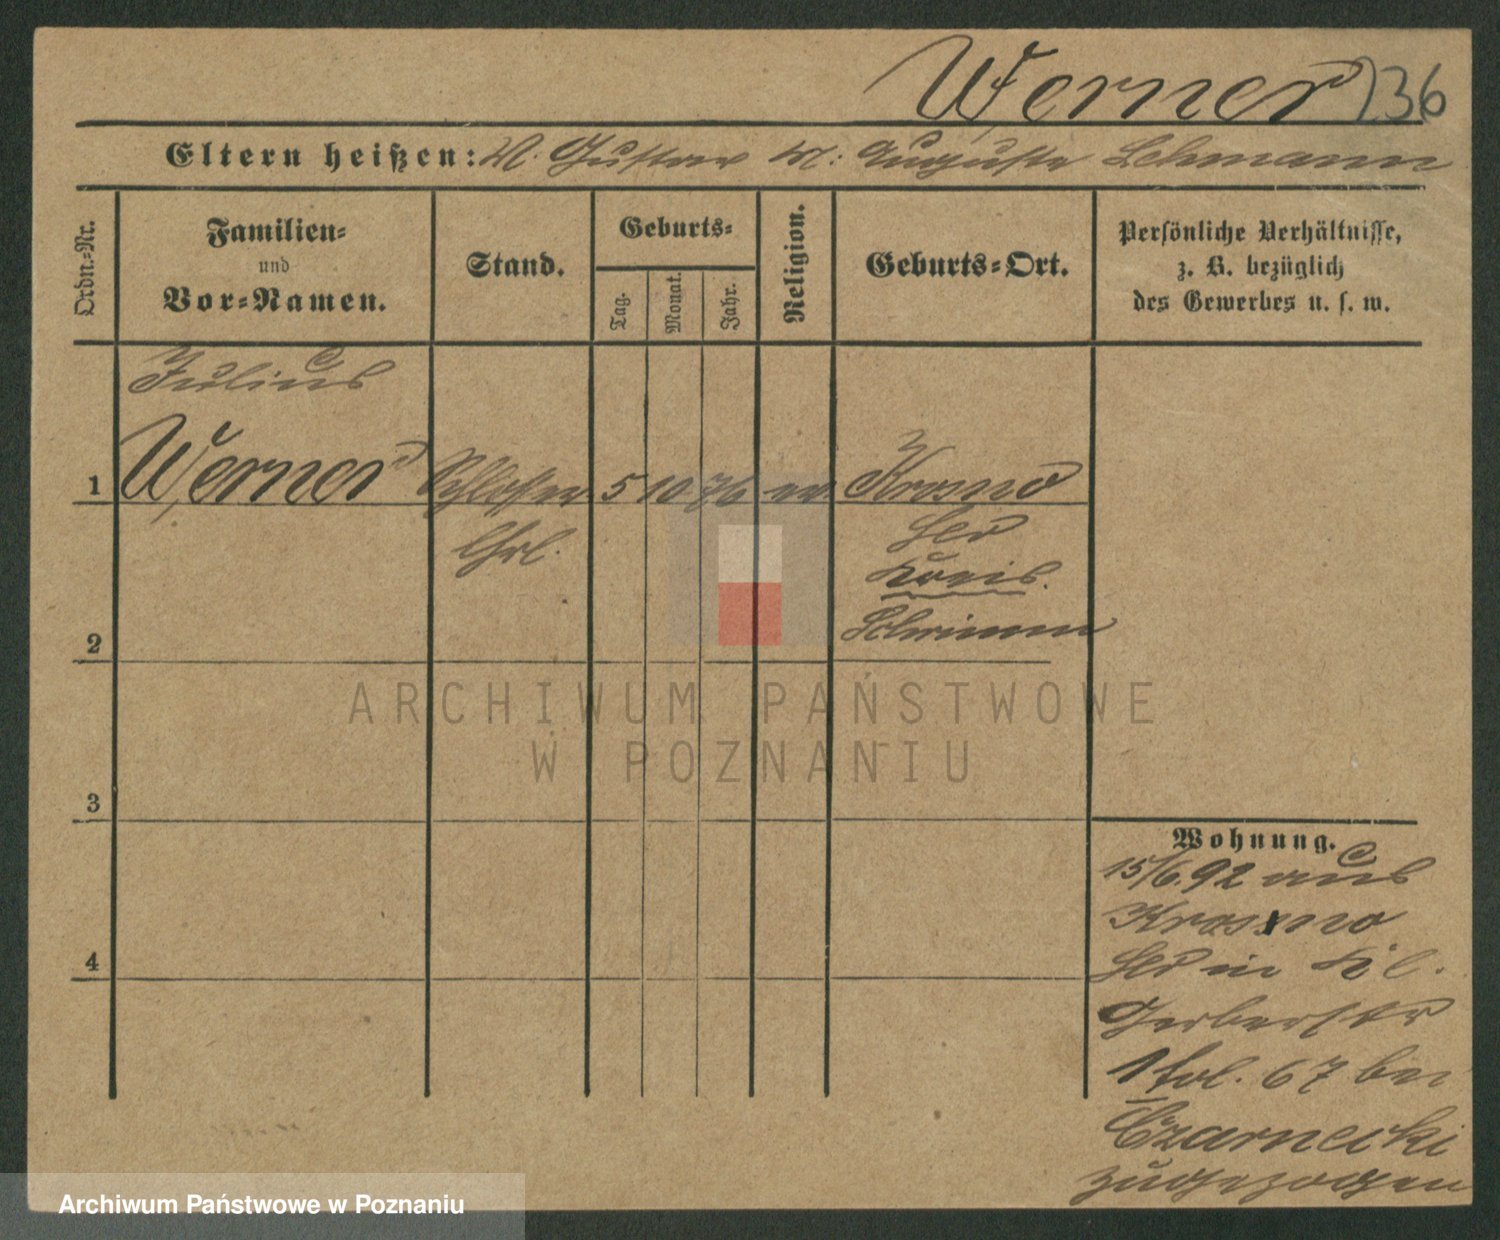 Werner 136
Eltern heißen: V. Gustav M: Auguste Lehmann
Ordn.-Nr.
Familien-
und
Vor-Namen.
Stand.
Geburts-
Tag.
Monat.
Jahr.
Religion.
Geburts-Ort.
Persönliche Verhältnisse,
z. B. bezüglich
des Gewerbes u. s. w.
Julius
1 Werner Schlosser 5 10 76 ev. Krosno
Lhrl.
Hld
Kreis.
Schrimm
2
3
4
Wohnung.
15/6.92 aus
Krosno
Hld in
Gerberstr
1 fol. 67 bei
Czarnecki
zugezogen
ARCHIWUM PAŃSTWOWE
W POZNANIU
Archiwum Państwowe w Poznaniu